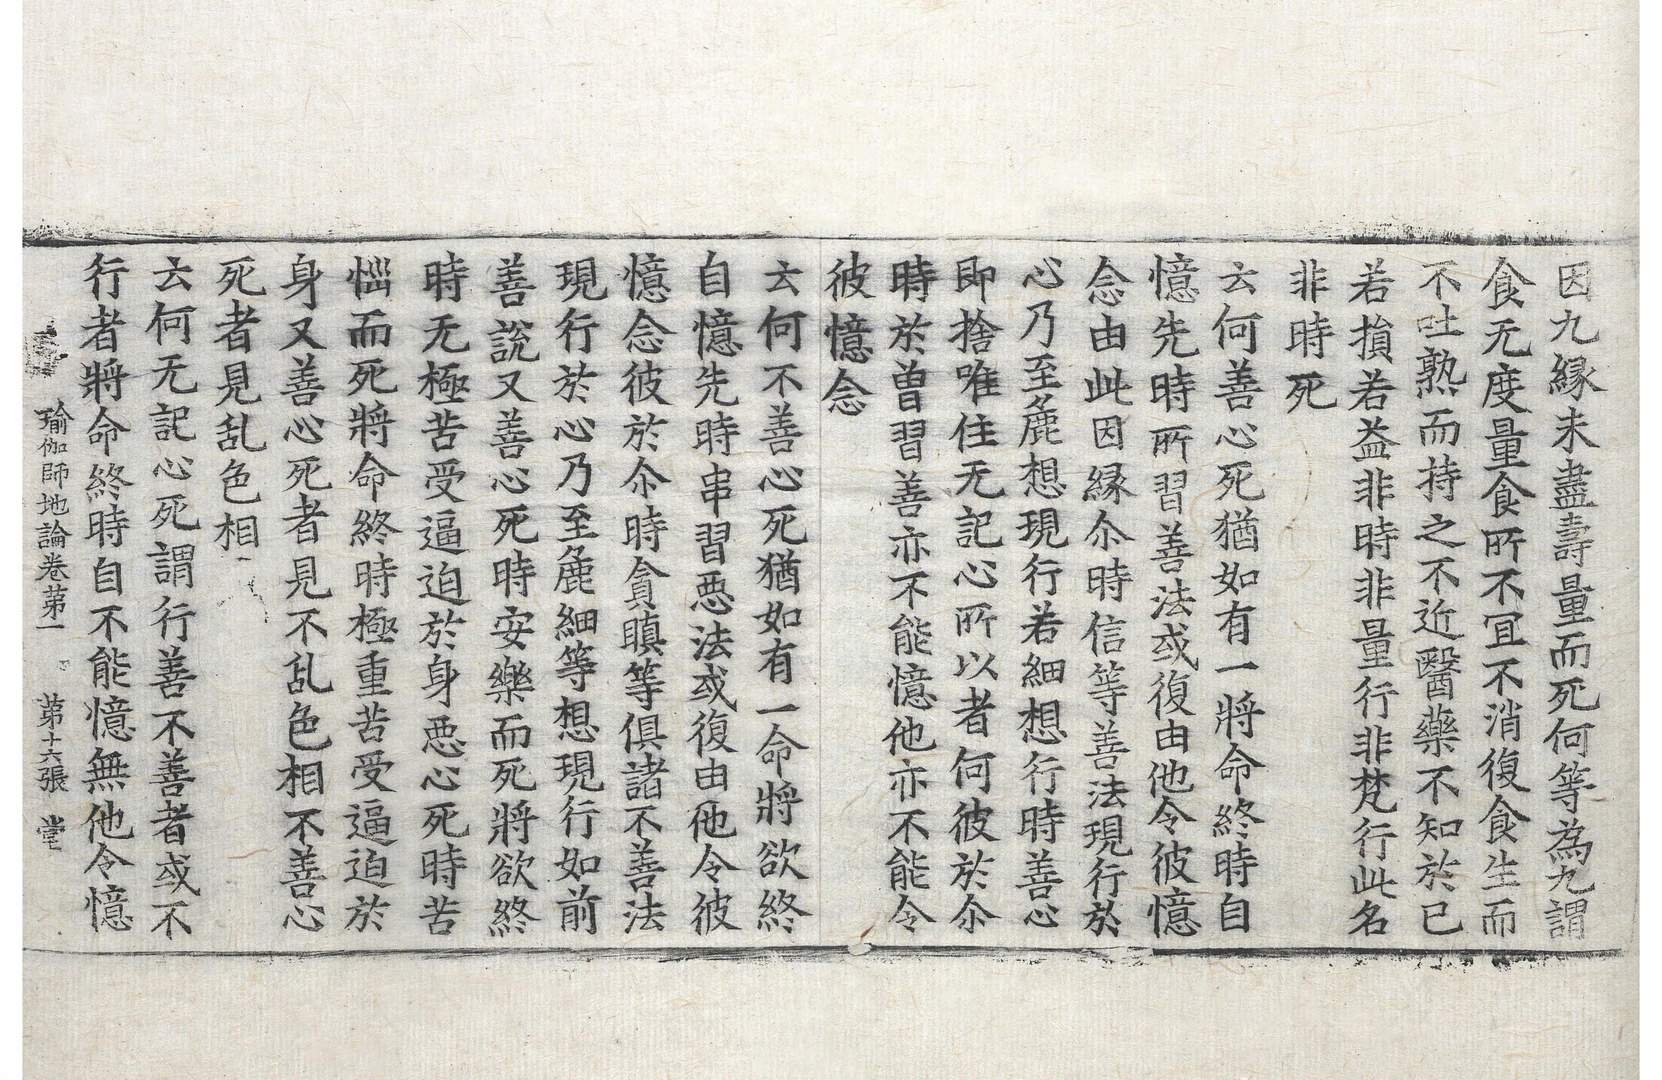 因九縁未盡壽量而死何等為九謂
食无度量食所不宜不消復食生而
不吐熟而持之不近醫藥不知於已
若損若益非時非量行非梵行此名
非時死
云何善心死猶如有一將命終時自
憶先時所習善法或復由他令彼憶
念由此因縁尒時信等善法現行於
心乃至麁想現行若細想行時善心
即捨唯住无記心所以者何彼於尒
時於曽習善亦不能憶他亦不能令
彼憶念
云何不善心死猶如有一命將欲終
自憶先時串習惡法或復由他令彼
憶念彼於尒時貪瞋等俱諸不善法
現行於心乃至麁細等想現行如前
善說又善心死時安樂而死將欲終
時无極苦受逼迫於身惡心死時苦
惱而死將命終時極重苦受逼迫於
身又善心死者見不乱色相不善心
死者見乱色相
云何无記心死謂行善不善者或不
行者將命終時自不能憶無他令憶
瑜伽師地論卷第一 第十六張 堂